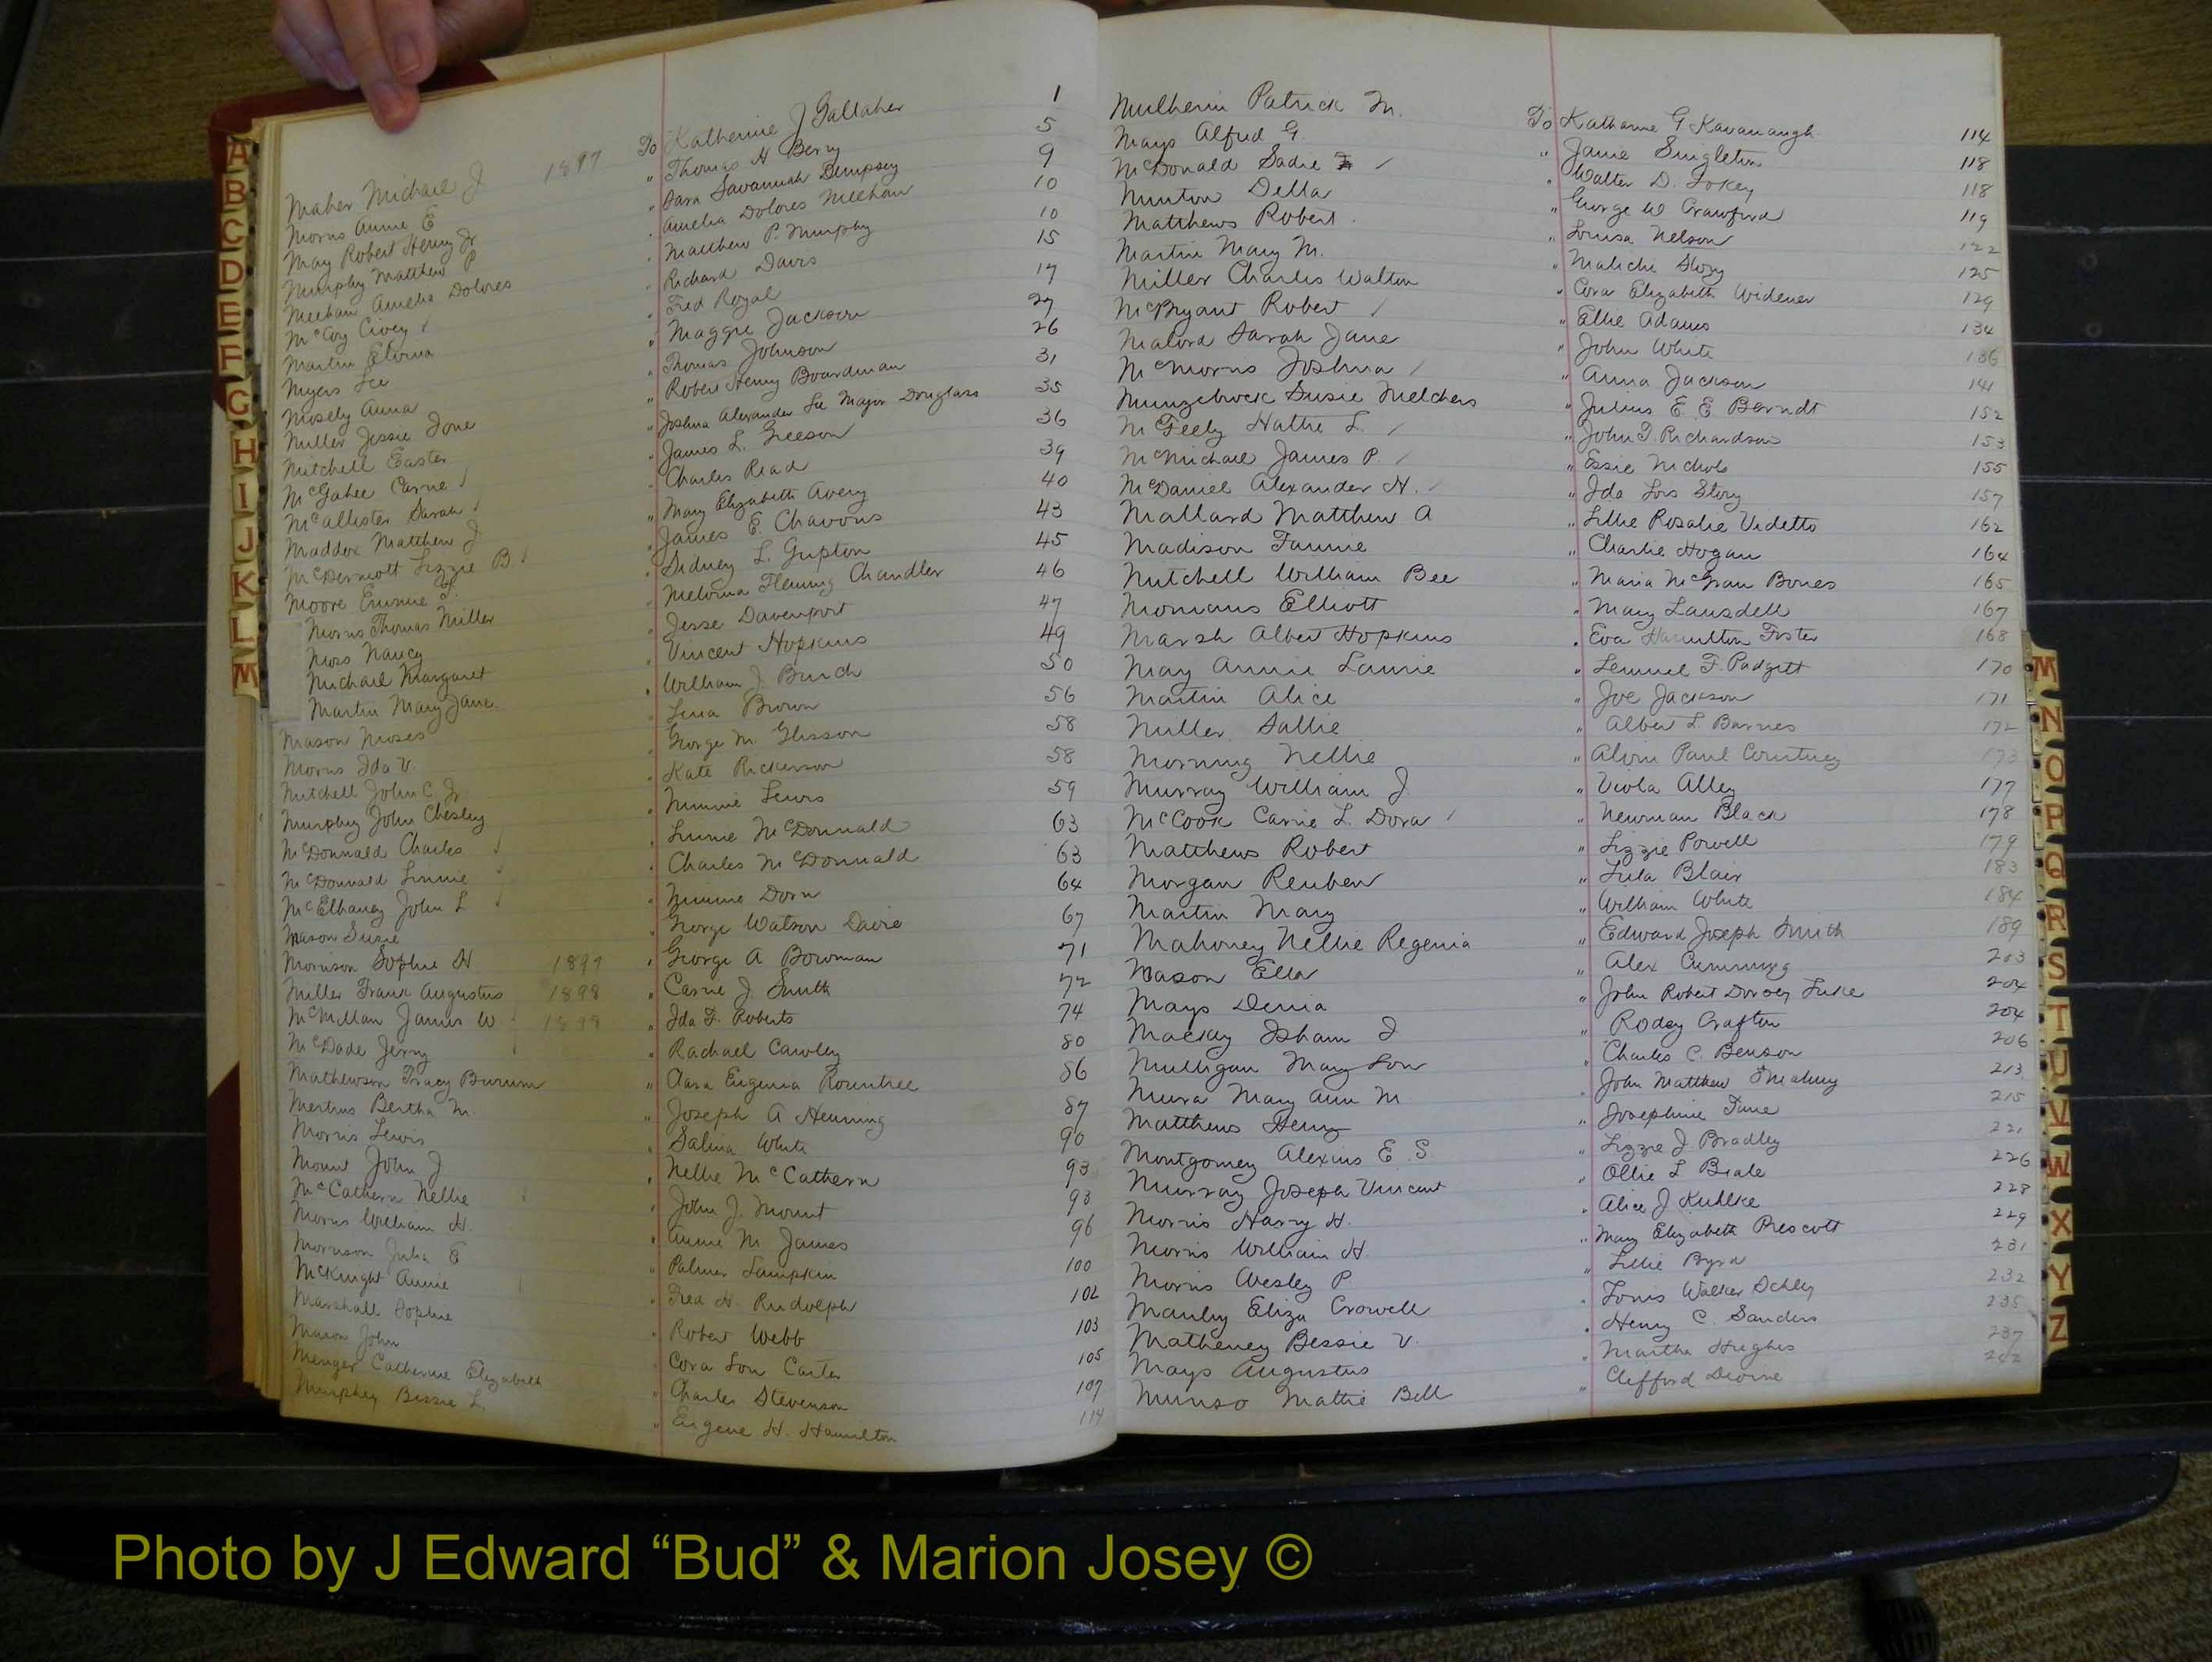 Maher Michael J. 1897 To Katherine J Gallaher 1
Morris Annie E " Thomas H Berry 5
May Robert Henry Jr " Sara Savannah Dempsey 9
Murphy Matthew P " Amelia Dolores Meehan 10
Meehan Amelia Dolores " Matthew P. Murphy 10
McCoy Civey " Richard Davis 15
Martin " Fred Royal 17
Myers Lee " Maggie Jackson 27
Mosely Anna " Thomas Johnson 26
Miller Jessie Jone " Robert Henry Boardman 31
Mitchell Easter " Joshua Alexander Lee Major Douglass 35
McGahee Carrie " James L. Greeson 36
McCallister Sarah " Charles Read 39
Maddox Matthew J " Mary Elizabeth Avery 40
McDermott Lizzie B " James E. Chavous 43
Moore Emmie F. " Sidney L. Gupton 45
Morris Thomas Miller " Melvina Fleming Chandler 46
Moss Nancy " Jesse Davenport 47
Michael Margaret " Vincent Hopkins 49
Martin Mary Jane " William J. Burch 50
Mason Moses " Lena Brown 56
Morris Ida V. " George M. Glisson 58
Mitchell John C. Jr " Kate Rickerson 58
Murphy John Chesley " Minnie Lewis 59
McDonnald Charles " Linnie McDonnald 63
McDonnald Linnie " Charles McDonnald 63
McElhaney John L " Minnie Dorn 64
Mason Susie " George Watson 67
Morrison Sophie H 1897 " George A Bowman 71
Miller Frank Augustus 1898 " Carrie J. Smith 72
McMillan James W 1898 " Ida F. Roberts 74
McDade Jerry " Rachael Cawley 80
Mathewson Tracy " Clara Eugenia Rountree 86
Mertins Bertha M. " Joseph A Henning 87
Morris Lewis " Salina White 90
Mount John J " Nellie McCathern 93
McCathern Nellie " John J. Mount 93
Morris William H. " Annie M James 96
Morrison Julia E " Palmer Lampkin 100
McKnight Annie " Fred H. Rudolph 102
Marshall Sophie " Robert Webb 103
Mason John " Cora Lou Carter 105
Menger Catherine Elizabeth " Charles Stevenson 107
Murphey Bessie L. " Eugene H. Hamilton 114
Mulherin Patrick M. To Katharine G Kavanaugh 114
Mays Alfred G. " Janie Singleton 118
McDonald Sadie " Walter D. Fokey 118
Minton Della " George W Crawford 119
Matthews Robert " Louisa Nelson 122
Martin Mary M. " Story 125
Miller Charles Walton " Cora Elizabeth Widener 129
McBryant Robert " Ellie Adams 134
Malord Sarah Jane " John White 136
McMorris Joshua " Anna Jackson 141
Munzebrock Susie Melchers " Julius E. E Berndt 152
McFeely Hattie L. " John T. Richardson 153
McMichael James P. " Essie Nichols 155
McDaniel Alexander H. " Ida Lois Story 157
Mallard Matthew A " Lillie Rosalie Videtto 162
Madison Fannie " Charlie Hogan 164
Mitchell William Bee " Maria McGran Bones 165
Momans Elliott " Mary Lansdell 167
Marsh Albert Hopkins " Eva Hamilton Foster 168
May Annie Laurie " Lemuel F. Padgett 170
Martin Alice " Joe Jackson 171
Miller Sallie " Albert L. Barnes 172
Morning Nellie " Alvin Paul Courtney 173
Murray William J. " Viola Alley 177
McCook Carrie L. Dora " Newman Black 178
Matthews Robert " Lizzie Powell 179
Morgan Reuben " Lula Blair 183
Martin Mary " William White 184
Mahoney Nellie Regenia " Edward Joseph Smith 189
Mason Ella " Alex Cumming 203
Mays Denia " John Robert Dorsey Luke 204
Mackay Isham J " Rodey Crafton 204
Mulligan May Lou " Charles C. Benson 206
Mura Mary Ann M " John Matthew 213
Matthews Henry " Josephine 215
Montgomery Alexius E S. " Lizzie J. Bradley 221
Murray Joseph Vincent " Ollie L Beale 226
Morris Harry H. " Alice J Kuhlke 228
Morris William H. " Mary Elizabeth Prescott 229
Morris Wesley P. " Lillie Byrd 231
Manley Eliza Crowell " Louis Walker Schley 232
Matheney Bessie V. " Henry C. Sanders 235
Mays Augustus " Martha Hughes 237
Munso Mattie Bell " Clifford 242
A
B
C
D
E
F
G
H
I
J
K
L
M
M
N
O
P
Q
R
S
T
U
V
W
X
Y
Z
Photo by J Edward “Bud” & Marion Josey ©